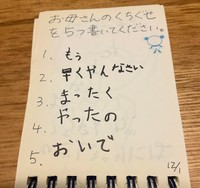 お母さんのくちぐせ
を5つ書いてください。
1. もう
2. 早くやんなさい
3. まったく
4. やったの
5. おいで
12/1